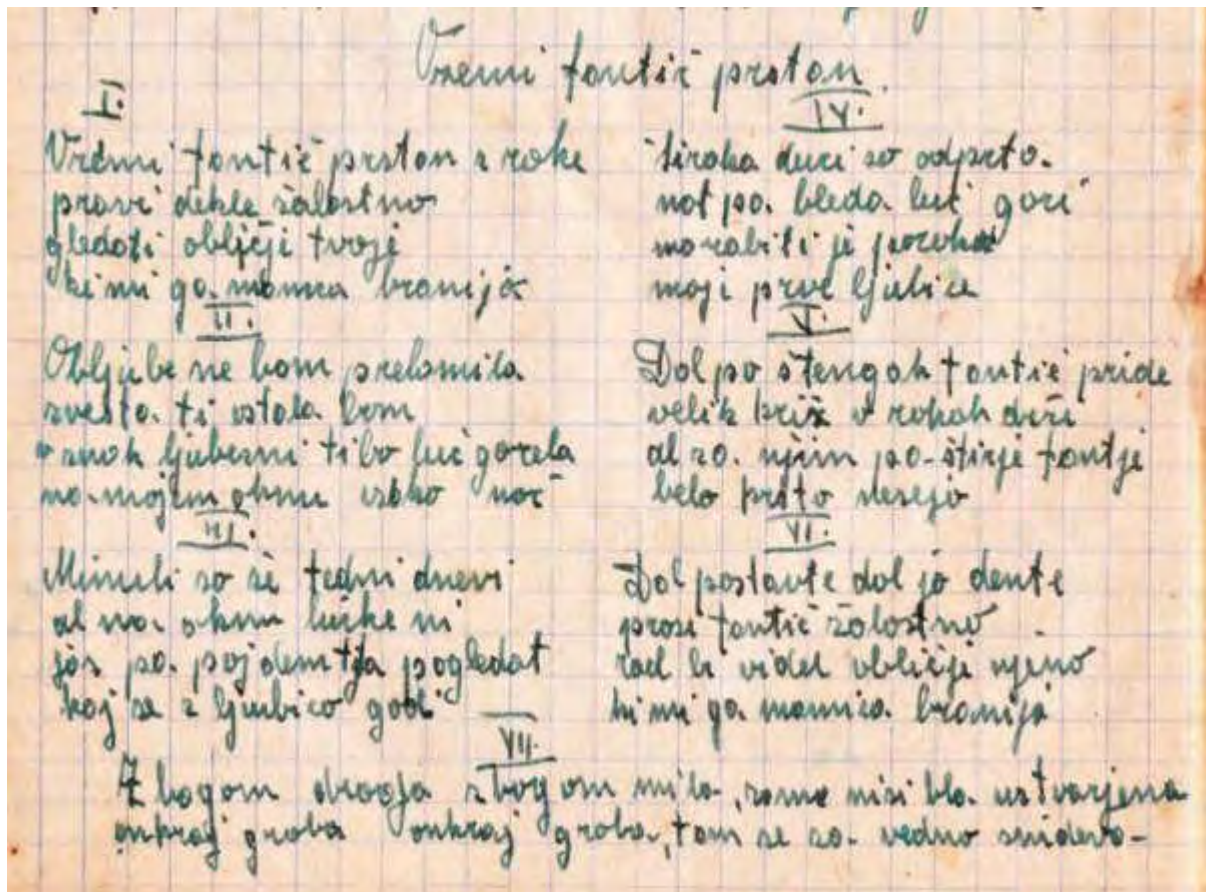 Vzemi fantič prstan
I.
Vzemi fantič prstan z roke
pravi dekle žalostno
gledati obličji tvoje
ki mi ga mamca branijo
II.
Obljube ne bom prelomila
zvesta ti ostala bom
znak ljubezni ti bo luč gorela
na mojem oknu usako noč
III.
Minuli so že tedni dnevi
al na oknu lučke ni
jas pa pojdem tja pogledat
kaj se z ljubico godi
IV.
široka duri so odprta
not pa bleda luč gori
morabiti je poroka
moji prve ljubice
V.
Dol po štengah fantič pride
velik križ v rokah drži
al za njim pa štirje fantje
belo krsto nesejo
VI.
Dol postavte dol jo dente
prosi fantič žalostno
rad bi videl obličji njeno
ki mi ga mamica branijo
VII.
Z bogom draga z bogom mila, zame nisi bla ustvarjena
onkraj groba onkraj groba, tam se za vedno snideva